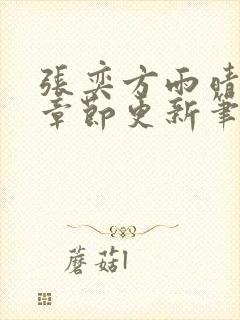 張奕方雨晴
章節更新筆
蘑菇l